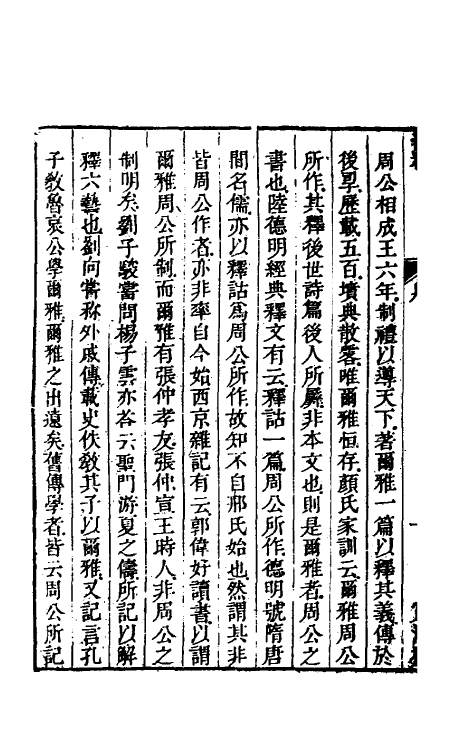 周公相成王六年制禮以導天下著爾雅一篇以釋其義傳於
後㝵歷載五百墳典散畧唯爾雅恒存顔氏家訓云爾雅周公
所作其釋後世詩篇後人所屩非本文也則是爾雅者周公之
書也陸德明經典釋文有云釋詁一篇周公所作德明號隋唐
間名儒亦以釋詁爲周公所作故知不自邢氏始也然謂其非
皆周公作者亦非率自今始西京雜記有云郭偉好讀書以謂
爾雅周公所制而爾雅有張仲孝友張仲宣王時人非周公之
制明矣劉子駿嘗問楊子雲亦荅云聖門游夏之儔所記以解
釋六藝也劉向嘗称外戚傳載史佚敎其子以爾雅又記言孔
子敎魯哀公學爾雅爾雅之出遠矣舊傳學者皆云周公所記